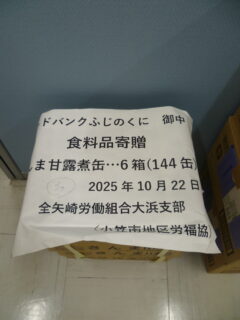 ドバンクふじのくに　御中
食料品寄贈
ま甘露煮缶…6箱(144缶)
2025年10月22日
全矢崎労働組合大浜支部
(小笠南地区労福協)